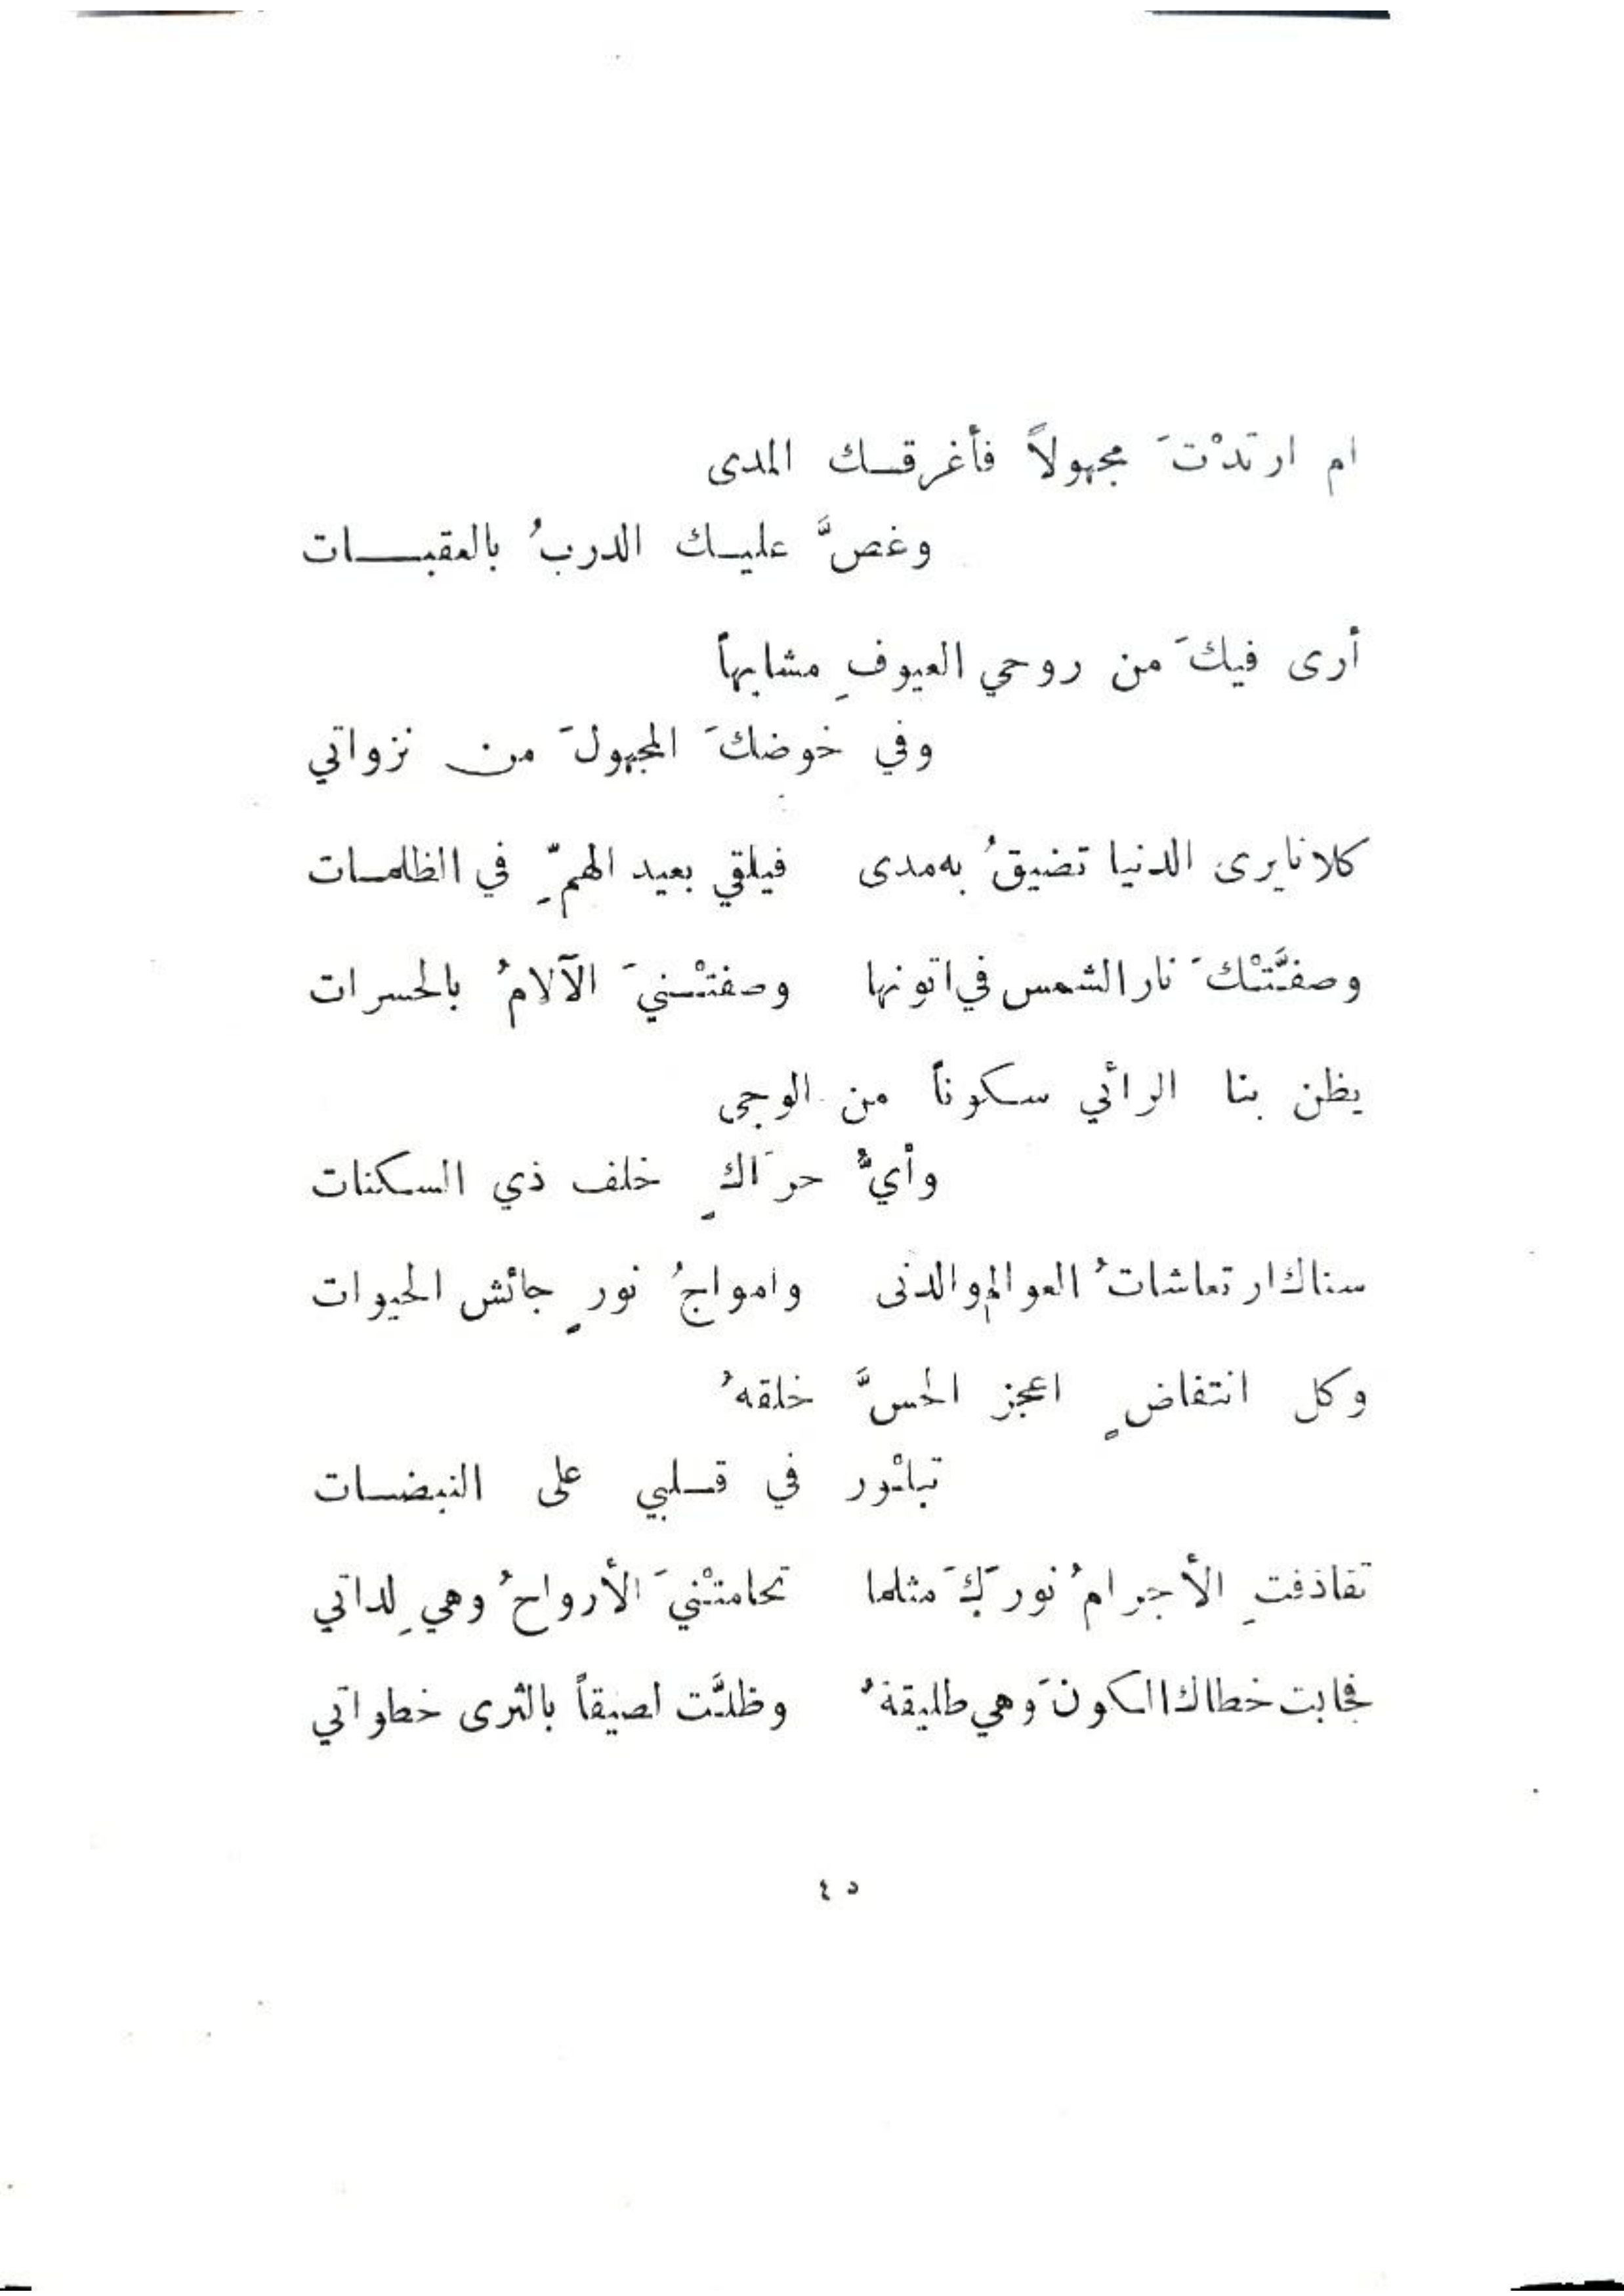 ام ارتدْتَ مجهولاً فأغرقـك المدى
وغصَّ عليـك الدربُ بالعقبـــات
أرى فيكَ من روحي العيوفِ مشابهاً
وفي خوضكَ المجهولَ من نزواتي
كلانا يرى الدنيا تضيقُ به مدى فيلقي بعيد الهمِّ في الظلمـات
وصفَّتْكَ نار الشمس في اتونها وصفتْـنيَ الآلامُ بالحسرات
يظن بنا الرائي سكوناً من الوجى
وأيُّ حرَاكٍ خلف ذي السكنات
سناك ارتعاشاتُ العوالم والدنى وامواجُ نورٍ جائش الحيوات
وكل انتفاضٍ اعجز الحسَّ خلقهُ
تبلْور في قـلبي على النبضـات
تقاذفتِ الأجرامُ نورَكَ مثلما تحامتْنيَ الأرواحُ وهي لِداتي
فجابت خطاك الكونَ وهي طليقةٌ وظلَّت لصيقاً بالثرى خطواتي
٤٥